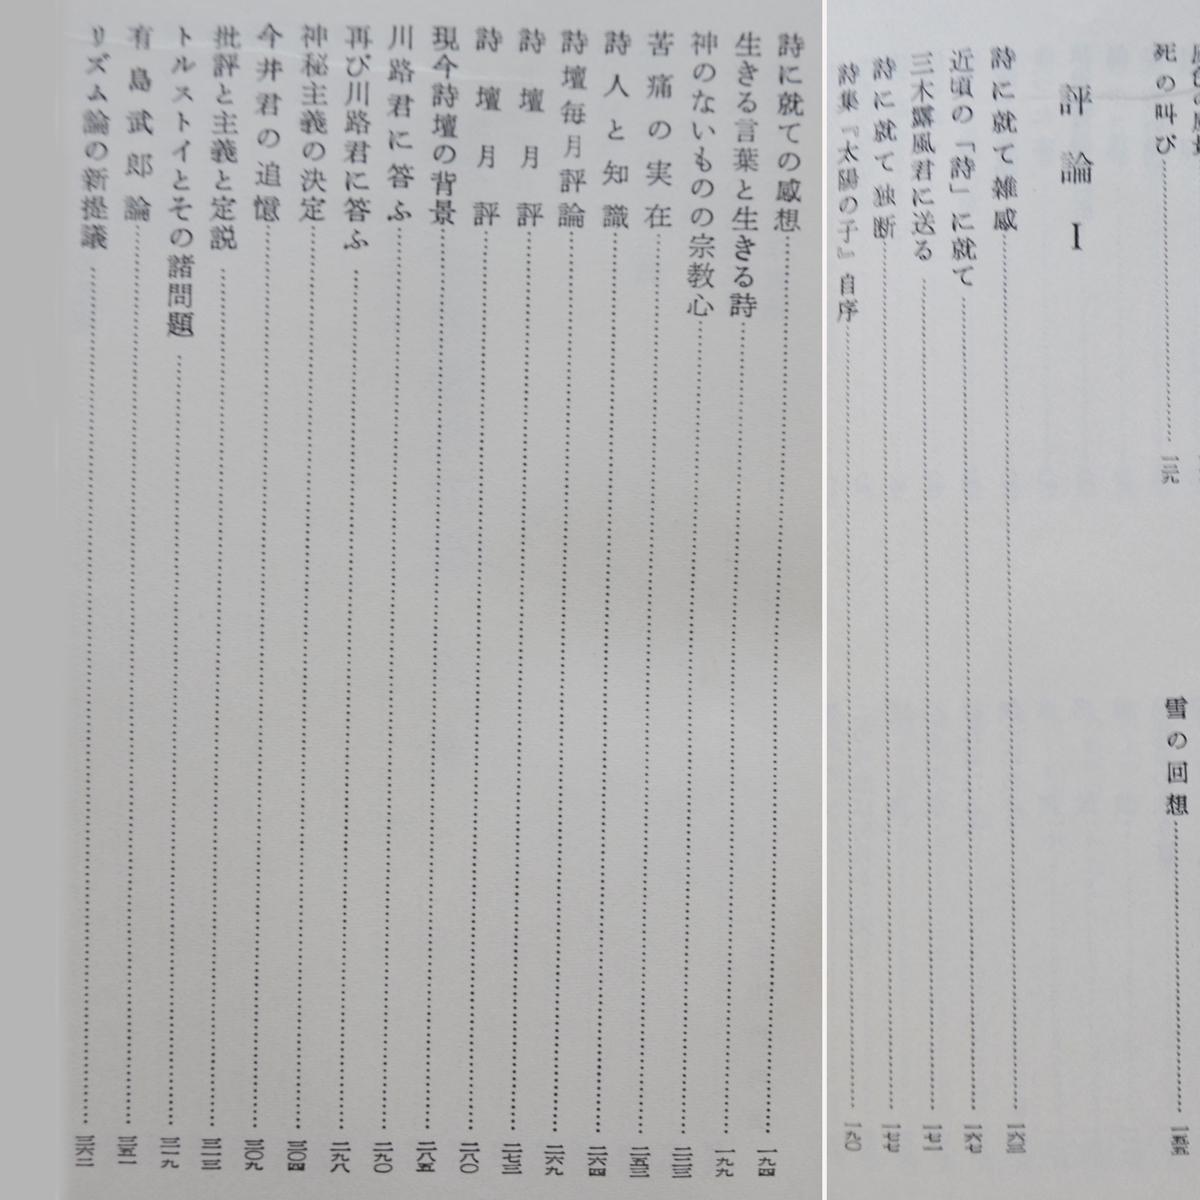 死の叫び……一三九
雪の回想……一五五
評論 I
詩に就て雑感……一六三
近頃の「詩」に就て……一六七
三木露風君に送る……一七一
詩に就て独断……一七七
詩集『太陽の子』自序……一九〇
詩に就ての感想……一九四
生きる言葉と生きる詩……一九九
神のないものの宗教心
苦痛の実在
詩人と知識……二六四
詩壇毎月評論……二六九
詩壇月評……二七三
詩壇月評……二八〇
現今詩壇の背景……二八五
川路君に答ふ……二九〇
再び川路君に答ふ……二九八
神秘主義の決定……三〇四
今井君の追憶……三〇九
批評と主義と定説……三一三
トルストイとその諸問題……三一九
有島武郎論……三五一
リズム論の新提議……三六二